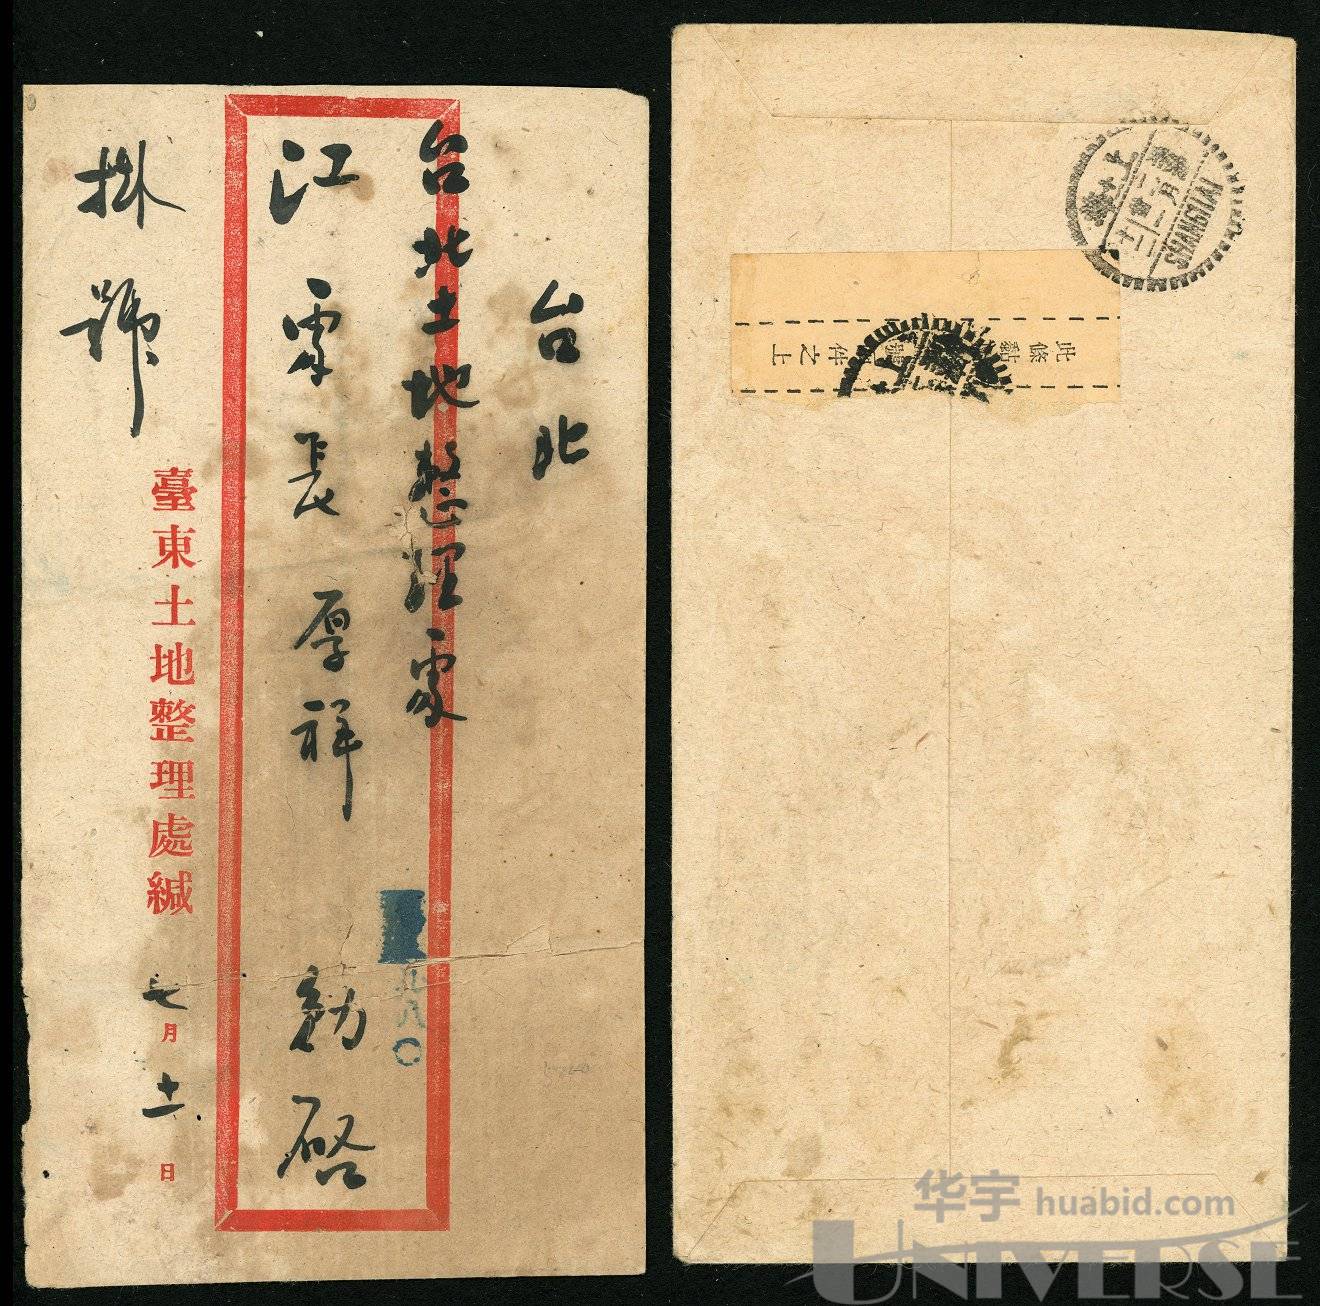 台北
台北土地整理處
江處長厚祥 勛啓
九八〇
掛號
臺東土地整理處緘
七月十一日
上海
SHANGHAI
此條黏
件之上
华宇 huabid.com
UNIVERSE